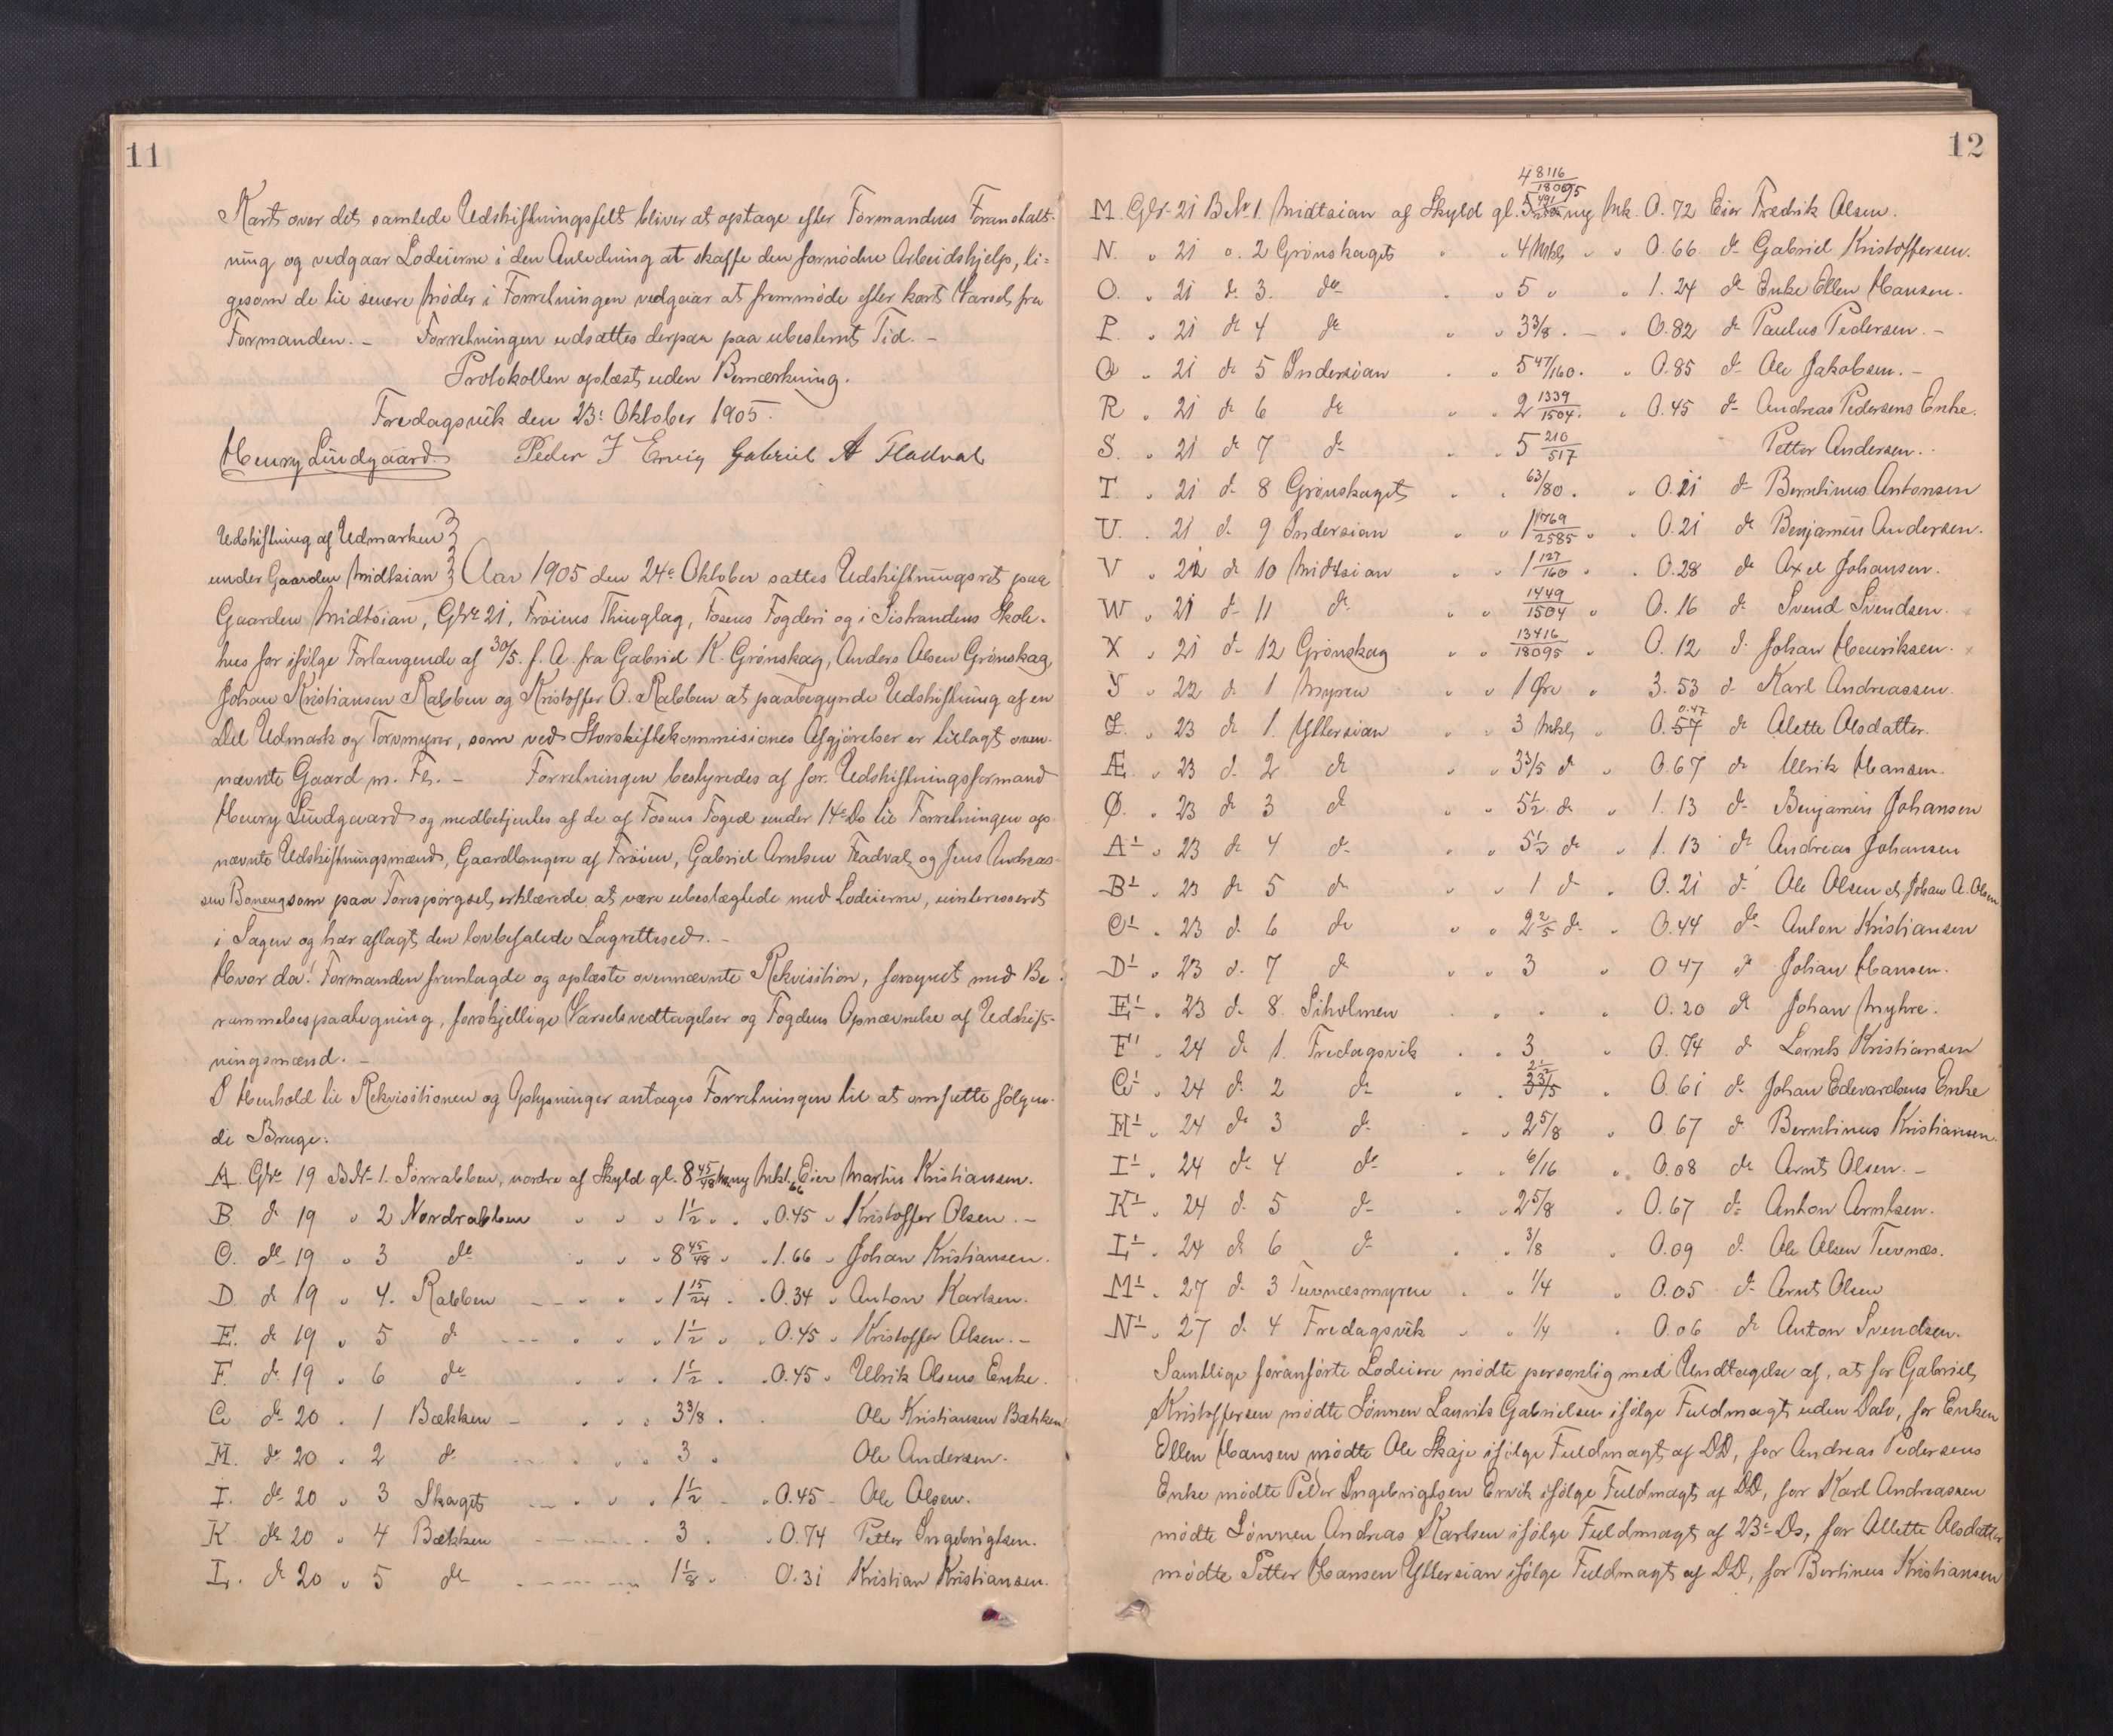 11
Kart over det samlede Udskiftningsfelt bliver at optage efter Formandens Foranstalt-
ning og vedgaar Lodeierne i den Anledning at skaffe den fornødne Arbeidshjelp, li-
gesom de til senere Møder i Forretningen vedgaar at fremmøde efter kort Varsel fra
Formanden. – Forretningen udsattes derpaa paa ubestemt Tid. –
Protokollen oplæst uden Bemærkning.
Fredagsvik den 23: Oktober 1905.
Henry Lindgaard Peder J Ervig Gabriel A Fladval
Udskiftning af Udmarken
under Gaarden Midtsian } Aar 1905 den 24de Oktober sattes Udskiftningsret paa
Gaarden Midtsian, Gnr 21, Frøiens Thinglag, Fosens Fogderi og i Sistrandens Skole-
hus for ifølge Forlangende af 30/5. f. A. fra Gabriel K. Grønskag, Anders Olsen Grønskag,
Johan Kristiansen Rabben og Kristoffer O. Rabben at paabegynde Udskiftning af en
Del Udmark og Torvmyrer, som ved Storskiftekommisiones Afgjørelser er tillagt oven-
nævnte Gaard m. Fl. – Forretningen bestyredes af for. Udskiftningsformand
Henry Lindgaard og medbetjentes af de af Fosens Foged under 14de Ds til Forretningen op-
nævnte Udskiftningsmænd, Gaardbrugere af Frøien, Gabriel Arntsen Fladval og Jens Andreas-
sen Boneng som paa Forespørgsel erklærede at være ubeslægtede med Lodeierne, uinteresseret
i Sagen og har aflagt den lovbefalede Lagrettesed. –
Hvor da! Formanden fremlagde og oplæste ovennævnte Rekvisition, forsynet med Be-
rammelsespaategning, forskjellige Varselsvedtagelser og Fogdens Opnævnelse af Udskift-
ningsmænd. –
I Henhold til Rekvisitionen og Oplysninger antages Forretningen til at omfatte følgen-
de Bruge:
A. Gnr 19 BNr 1. Sørrabben, nordre af Skyld gl. 8 45/48 ny Mk 1.66 Eier Martin Kristiansen.
B. do 19 " 2 Nordrabben " " " 1 1/2 " " " 0.45 " Kristoffer Olsen. –
C. do 19 " 3 do " " " 8 45/48 " " 1.66 " Johan Kristiansen.
D. do 19 " 4. Rabben " " " 1 15/24 " " 0.34 " Anton Karlsen.
E. do 19 " 5 do " " " 1 1/2 " " 0.45 " Kristoffer Olsen. –
F. do 19 " 6 do " " " 1 1/2 " " 0.45 " Ulrik Olsens Enke.
G do 20 " 1 Bækken – " " " 3 3/8 " Ole Kristiansen Bækken
H. do 20 " 2 do " " " 3 " Ole Andersen.
I. do 20 " 3 Skaget " " " 1 1/2 " 0.45 Ole Olsen.
K do 20 " 4 Bækken 3 " " 0.74 Petter Ingebrigtsen.
L. do 20 " 5 do 1 1/8 " 0.31 Kristian Kristiansen.
12
M. GNr 21 BNr 1. Midtsian af Skyld gl. 4 8116/18095 ny Mk. 0.72 Eier Fredrik Olsen.
N. " 21 " 2 Grønskaget " " 4 Mkl " " 0.66 do Gabriel Kristoffersen.
O. " 21 do 3. do " " 5 " " 1.24 do Enke Ellen Hansen.
P. " 21 do 4 do " " 3 3/8 . – " 0.82 do Paulus Pedersen. –
Q " 21 do 5 Indersian " " 5 47/160. " 0.85 do Ole Jakobsen. –
R " 21 do 6 do " " 2 1339/1504. " 0.45 do Andreas Pedersens Enke.
S. " 21 do 7 do " " 5 210/517 Petter Andersen.
T " 21 do 8 Grønskaget " " 63/80. " 0.21 do Berntinus Antonsen
U. " 21 do 9 Indersian " " 1 1769/2585 " " 0.21 do Benjamin Andersen.
V " 21 do 10 Midtsian " " 1 127/160 " " 0.28 do Axel Johansen.
W " 21 do 11 do " " 1449/1504 " 0.16 do Svend Svendsen.
X " 21 do 12 Grønskag " " 13416/18095 " 0.12 do Johan Henriksen.
Y " 22 do 1 Myren " " 1 Øre " 3.53 do Karl Andreassen.
Z. " 23 do 1. Yttersian " " 3 Mkl " 0.57 0.47 do Alette Olsdatter.
Æ. " 23 do 2 do " " 3 3/5 do " 0.67 do Ulrik Hansen.
Ø. " 23 do 3 do " " 5 1/2 do " 1.13 do Benjamin Johansen
A1 " 23 do 4 do " " 5 1/2 do " 1.13 do Andreas Johansen
B1 " 23 do 5 do " " 1 do " 0.21 do Ole Olsen el. Johan A. Olsen
C1 " 23 do 6 do " " 2 2/5 do " 0.44 do Anton Kristiansen
D1 " 23 do 7 do " " 3 " 0.47 do Johan Hansen.
E1 " 23 do 8. Siholmen " " " 0.20 do Johan Myhre.
F1 " 24 do 1. Fredagsvik " " 3 " 0.74 do Lornts Kristiansen
G1 " 24 do 2 do " " 2 1/2 3 3/5 " 0.61 do Johan Edevardsens Enke
H1 " 24 do 3 do " " 2 5/8 " 0.67 do Berntinus Kristiansen.
I1 " 24 do 4 do " " 6/16 " 0.08 do Arnt Olsen. –
K1 " 24 do 5 do " " 2 5/8 " 0.67 do Anton Arntsen.
L1 " 24 do 6 do " " 3/8 " 0.09 do Ole Olsen Tuvnæs.
M1 " 27 do 3 Tuvnæsmyren " " 1/4 " 0.05 do Arnt Olsen
N1 " 27 do 4 Fredagsvik " " 1/4 " 0.06 do Anton Svendsen.
Samtlige foranførte Lodeiere mødte personlig med Undtagelse af, at for Gabriel
Kristoffersen mødte Sønnen Laurits Gabrielsen ifølge Fuldmagt uden Dato, for Enken
Ellen Hansen mødte Ole Skaje ifølge Fuldmagt af DD, for Andreas Pedersens
Enke mødte Peder Ingebrigtsen Ervik ifølge Fuldmagt af DD, for Karl Andreassen
mødte Sønnen Andreas Karlsen ifølge Fuldmagt af 23de Ds, for Allette Olsdatter
mødte Petter Hansen Yttersian ifølge Fuldmagt af DD, for Bertinus Kristiansen